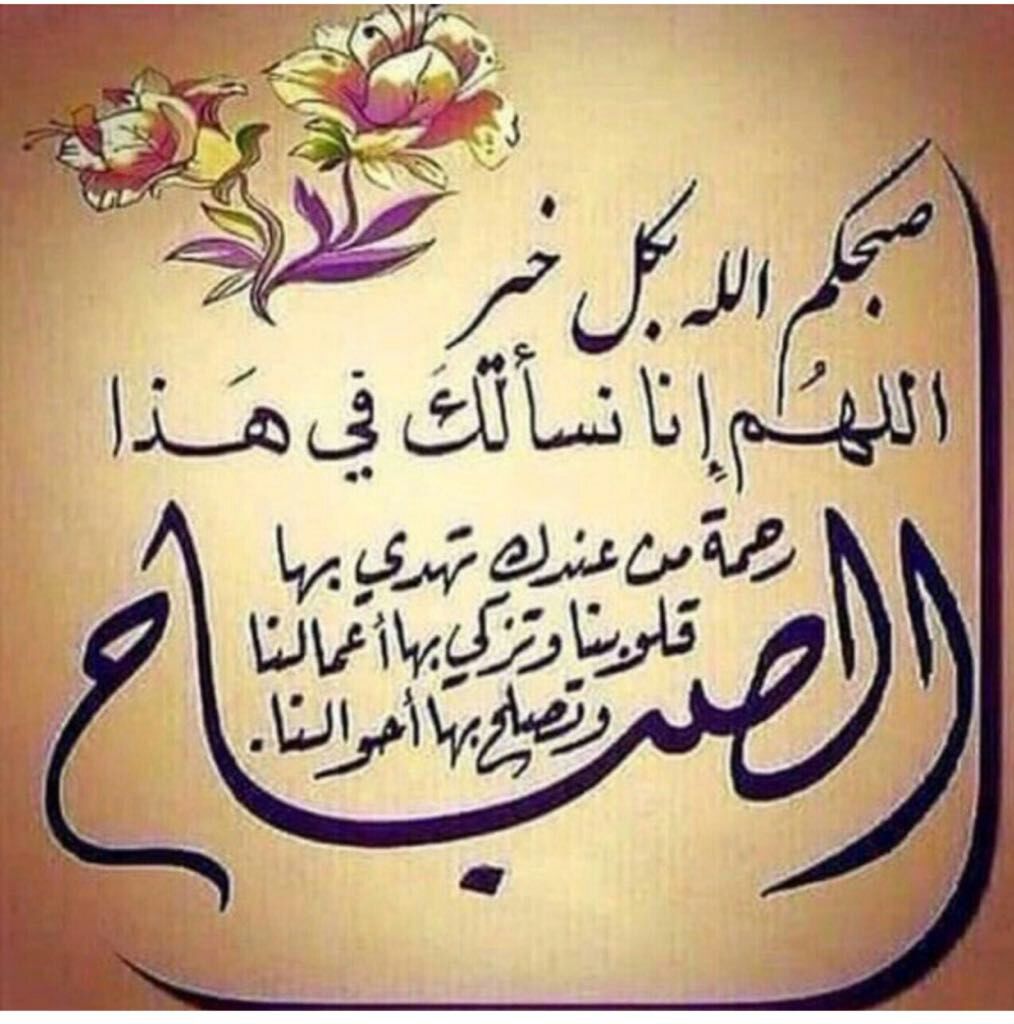 صبحكم الله بكل خير
اللهم إنا نسألك في هَذا
الصباح
رحمة من عندك تهدي بها
قلوبنا وتزكي بها أعمالنا
وتصلح بها أحوالنا.